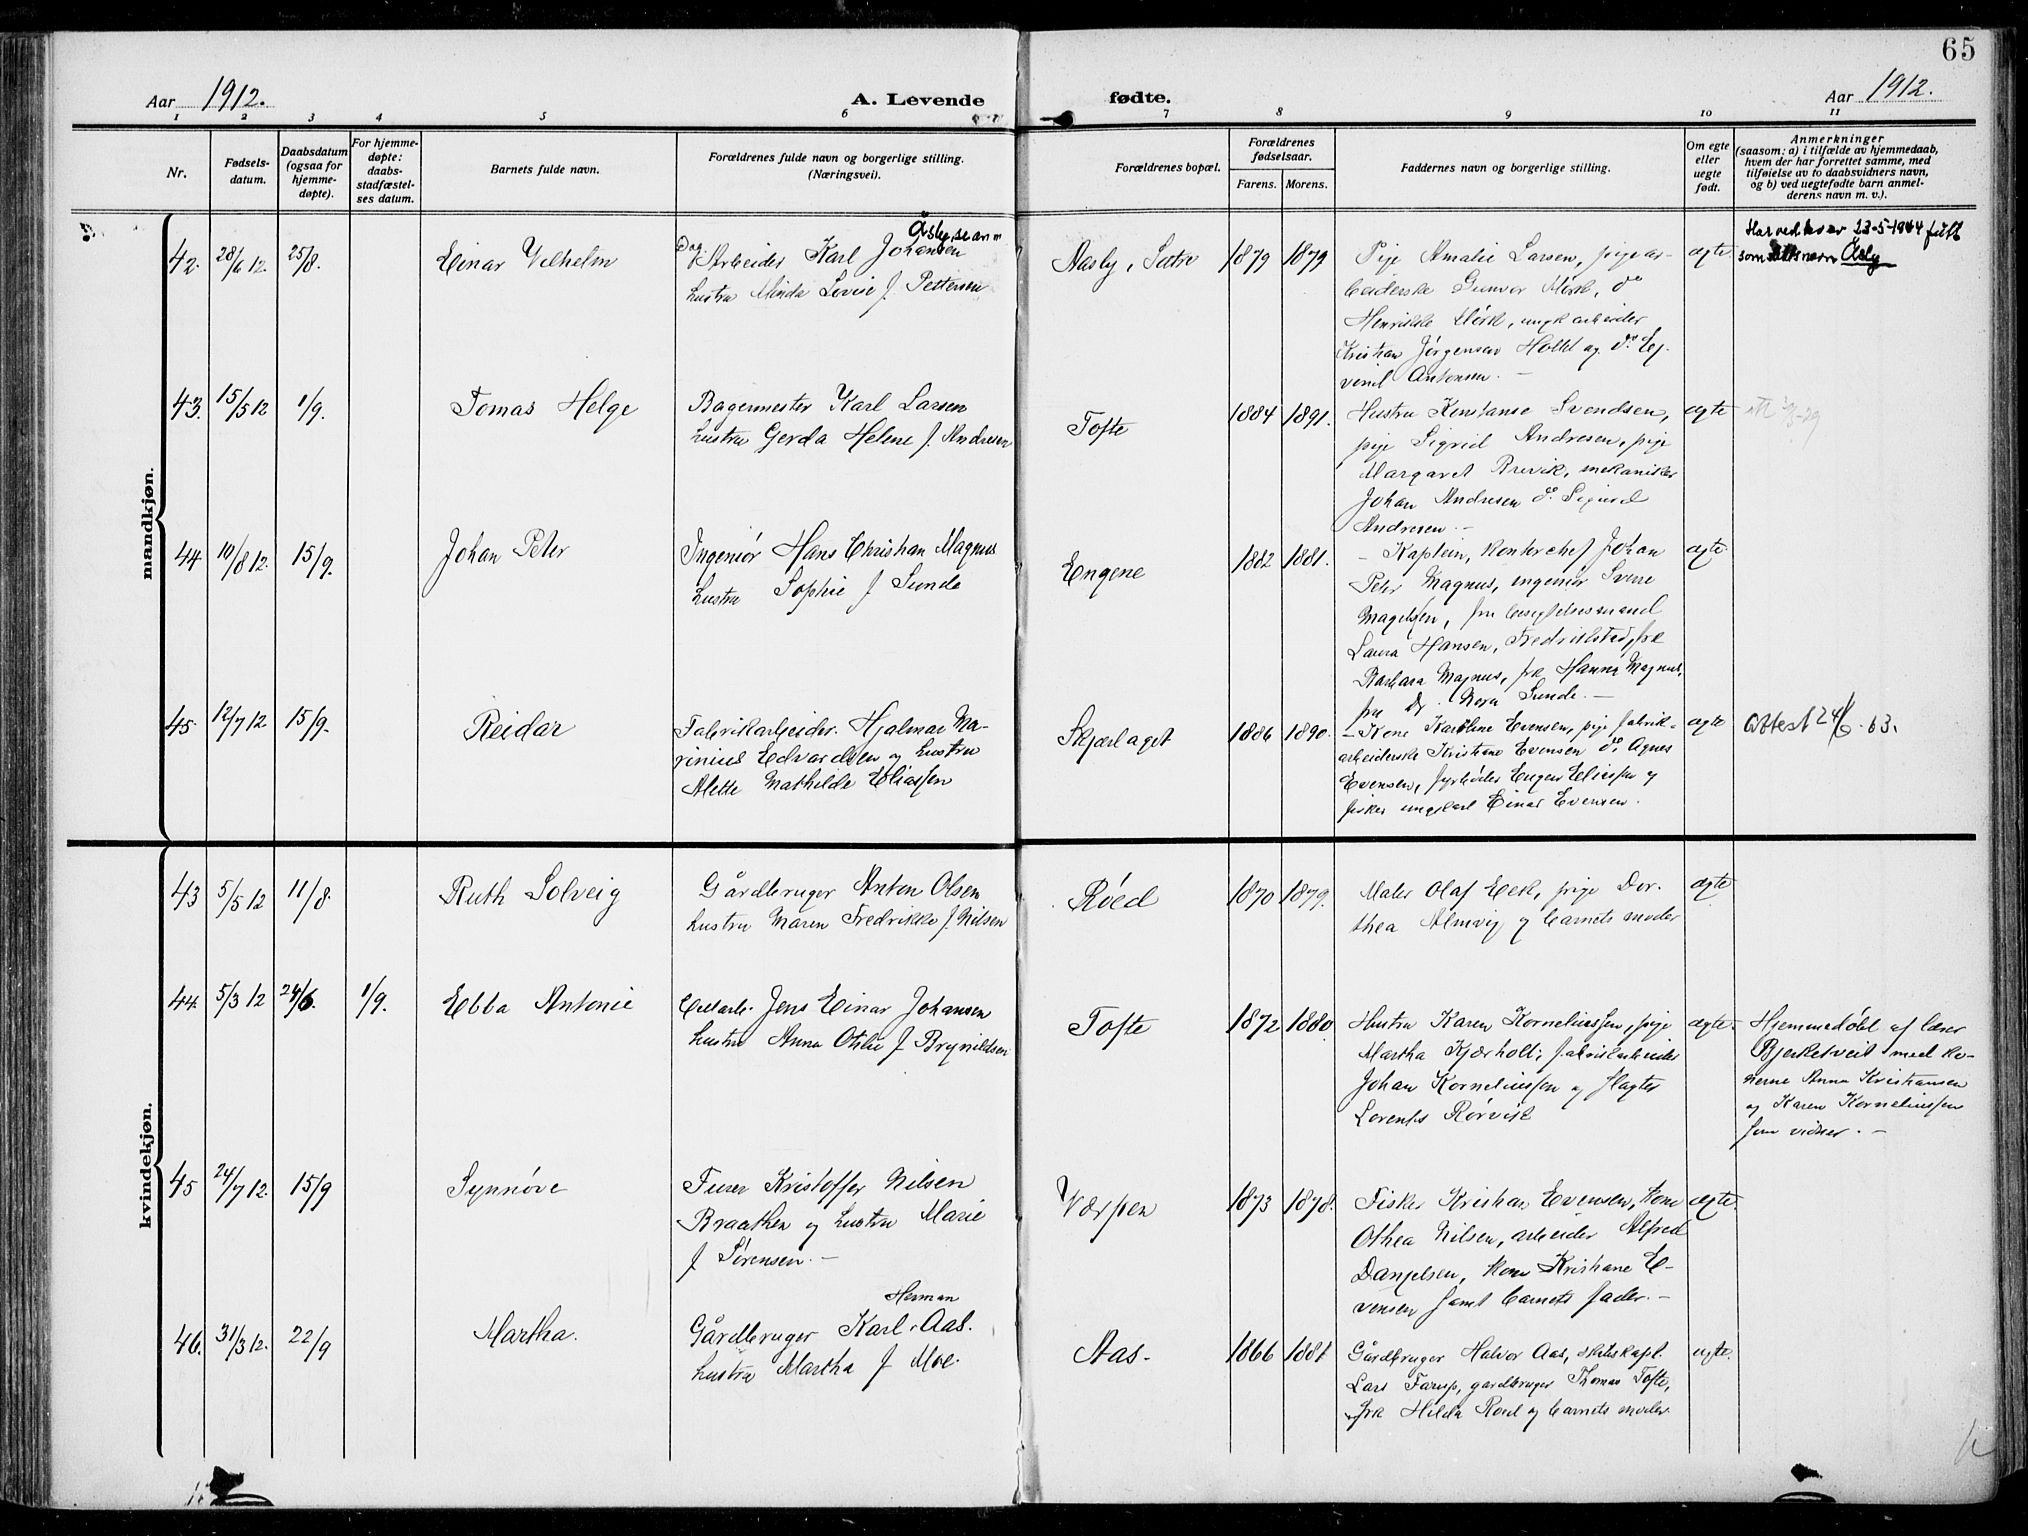 65
Aar 1912.
A. Levende
fødte.
Aar 1912.
1 2 3 4 5 6 7 8 9 10 11
Nr.
Fødsels-
datum.
Daabsdatum
(ogsaa for
hjemme-
døpte).
For hjemme-
døpte:
daabs-
stadfæstel-
ses datum.
Barnets fulde navn.
Forældrenes fulde navn og borgerlige stilling.
(Næringsvei).
Forældrenes bopæl.
Forældrenes
fødselsaar.
Farens. Morens.
Faddernes navn og borgerlige stilling.
Om egte
eller
uegte
født.
Anmerkninger
(saasom: a) i tilfælde av hjemmedaab,
hvem der har forrettet samme, med
tilføielse av to daabsvidners navn,
og b) ved uegtefødte barn anmel-
derens navn m. v.).
mandkjøn.
42. 28/6 12. 25/8. Einar Vilhelm
Arbeider Karl Johansen
hustru Minda Lovise f. Pettersen
Aasly, Sætre 1879 1879
Pige Amalie Larsen, pige ar-
beiderske Gunvor Mørk, do
Henrikke Mørk, ungk arbeider
Kristian Jørgensen Holtet og do Ej-
vind Antonsen. —
egte
23-5-1944
Åsly
43. 15/5 12 1/9. Tomas Helge
Bagermester Karl Larsen
hustru Gerda Helene f. Andresen
Tofte 1884 1891.
Hustru Konstanse Svendsen,
pige Sigrid Andresen, pige
Margaret Brevik, mekaniker
Johan Andresen do. Sigurd
Andresen. —
egte
44 10/8 12. 15/9. Johan Peter
Ingeniør Hans Christian Magnus
hustru Sophie f Sunde
Engene 1882 1881.
— Kaptein, kontorchef Johan
Peter Magnus, ingeniør Sverre
Magelssen, fru besigtelsesmand
Laura Hansen, Fredrikstad, frk
Barbara Magnus, frk Hanna Magnus,
fru Dr. Nora Sunde. —
egte
45. 12/7 12 15/9. Reidar
Fabrikarbeider. Hjalmar Ma-
rinius Edvardsen og hustru
Alette Mathilde Eliassen
Skjærlaget 1886 1890.
— Kone Karoline Evensen, pige fabrik-
arbeiderske Kristiane Evensen do. Agnes
Evensen, fyrbøder Eugen Eliassen og
fisker ungkarl Einar Evensen.
egte
Attest 24/6-63.
kvindekjøn.
43 5/5 12 11/8. Ruth Solveig
Gårdbruger Anton Olsen
hustru Maren Fredrikke f. Nilsen
Røed 1870 1879.
Maler Olaf Eek, pige Dor-
thea Almvig og barnets moder
egte
44. 5/3 12 24/6. 1/9. Ebba Antonie
Jens Einar Johansen
hustru Anna Otilie f Brynildsen
Tofte 1872 1880
Hustru Karen Korneliussen, pige
Martha Kjærholt, fabrikarbeider
Johan Korneliussen og slagter
Lorents Rørvik
egte.
Hjemmedøbt af lærer
Bjerketveit med ko-
nerne Anna Kristiansen
og Karen Korneliussen
som vidner. —
45 24/7 12. 15/9 Synnøve
Kristoffer Nilsen
Braathen og hustru Marie
f Sørensen. —
Værpen 1873 1878.
Fisker Kristian Evensen, kone
Othea Nilsen, arbeider Alfred
Danielsen, kone Kristiane E-
vensen samt barnets fader. —
egte.
46. 31/3 12. 22/9 Martha.
Herman
Gårdbruger Karl Aas.
hustru Martha f Moe.
Aas. 1866 1881
Gårdbruger Halvor Aas, skibskapt.
Lars Farup, gårdbruger Thomas Tofte,
frk Hilda Roed og barnets moder
egte.